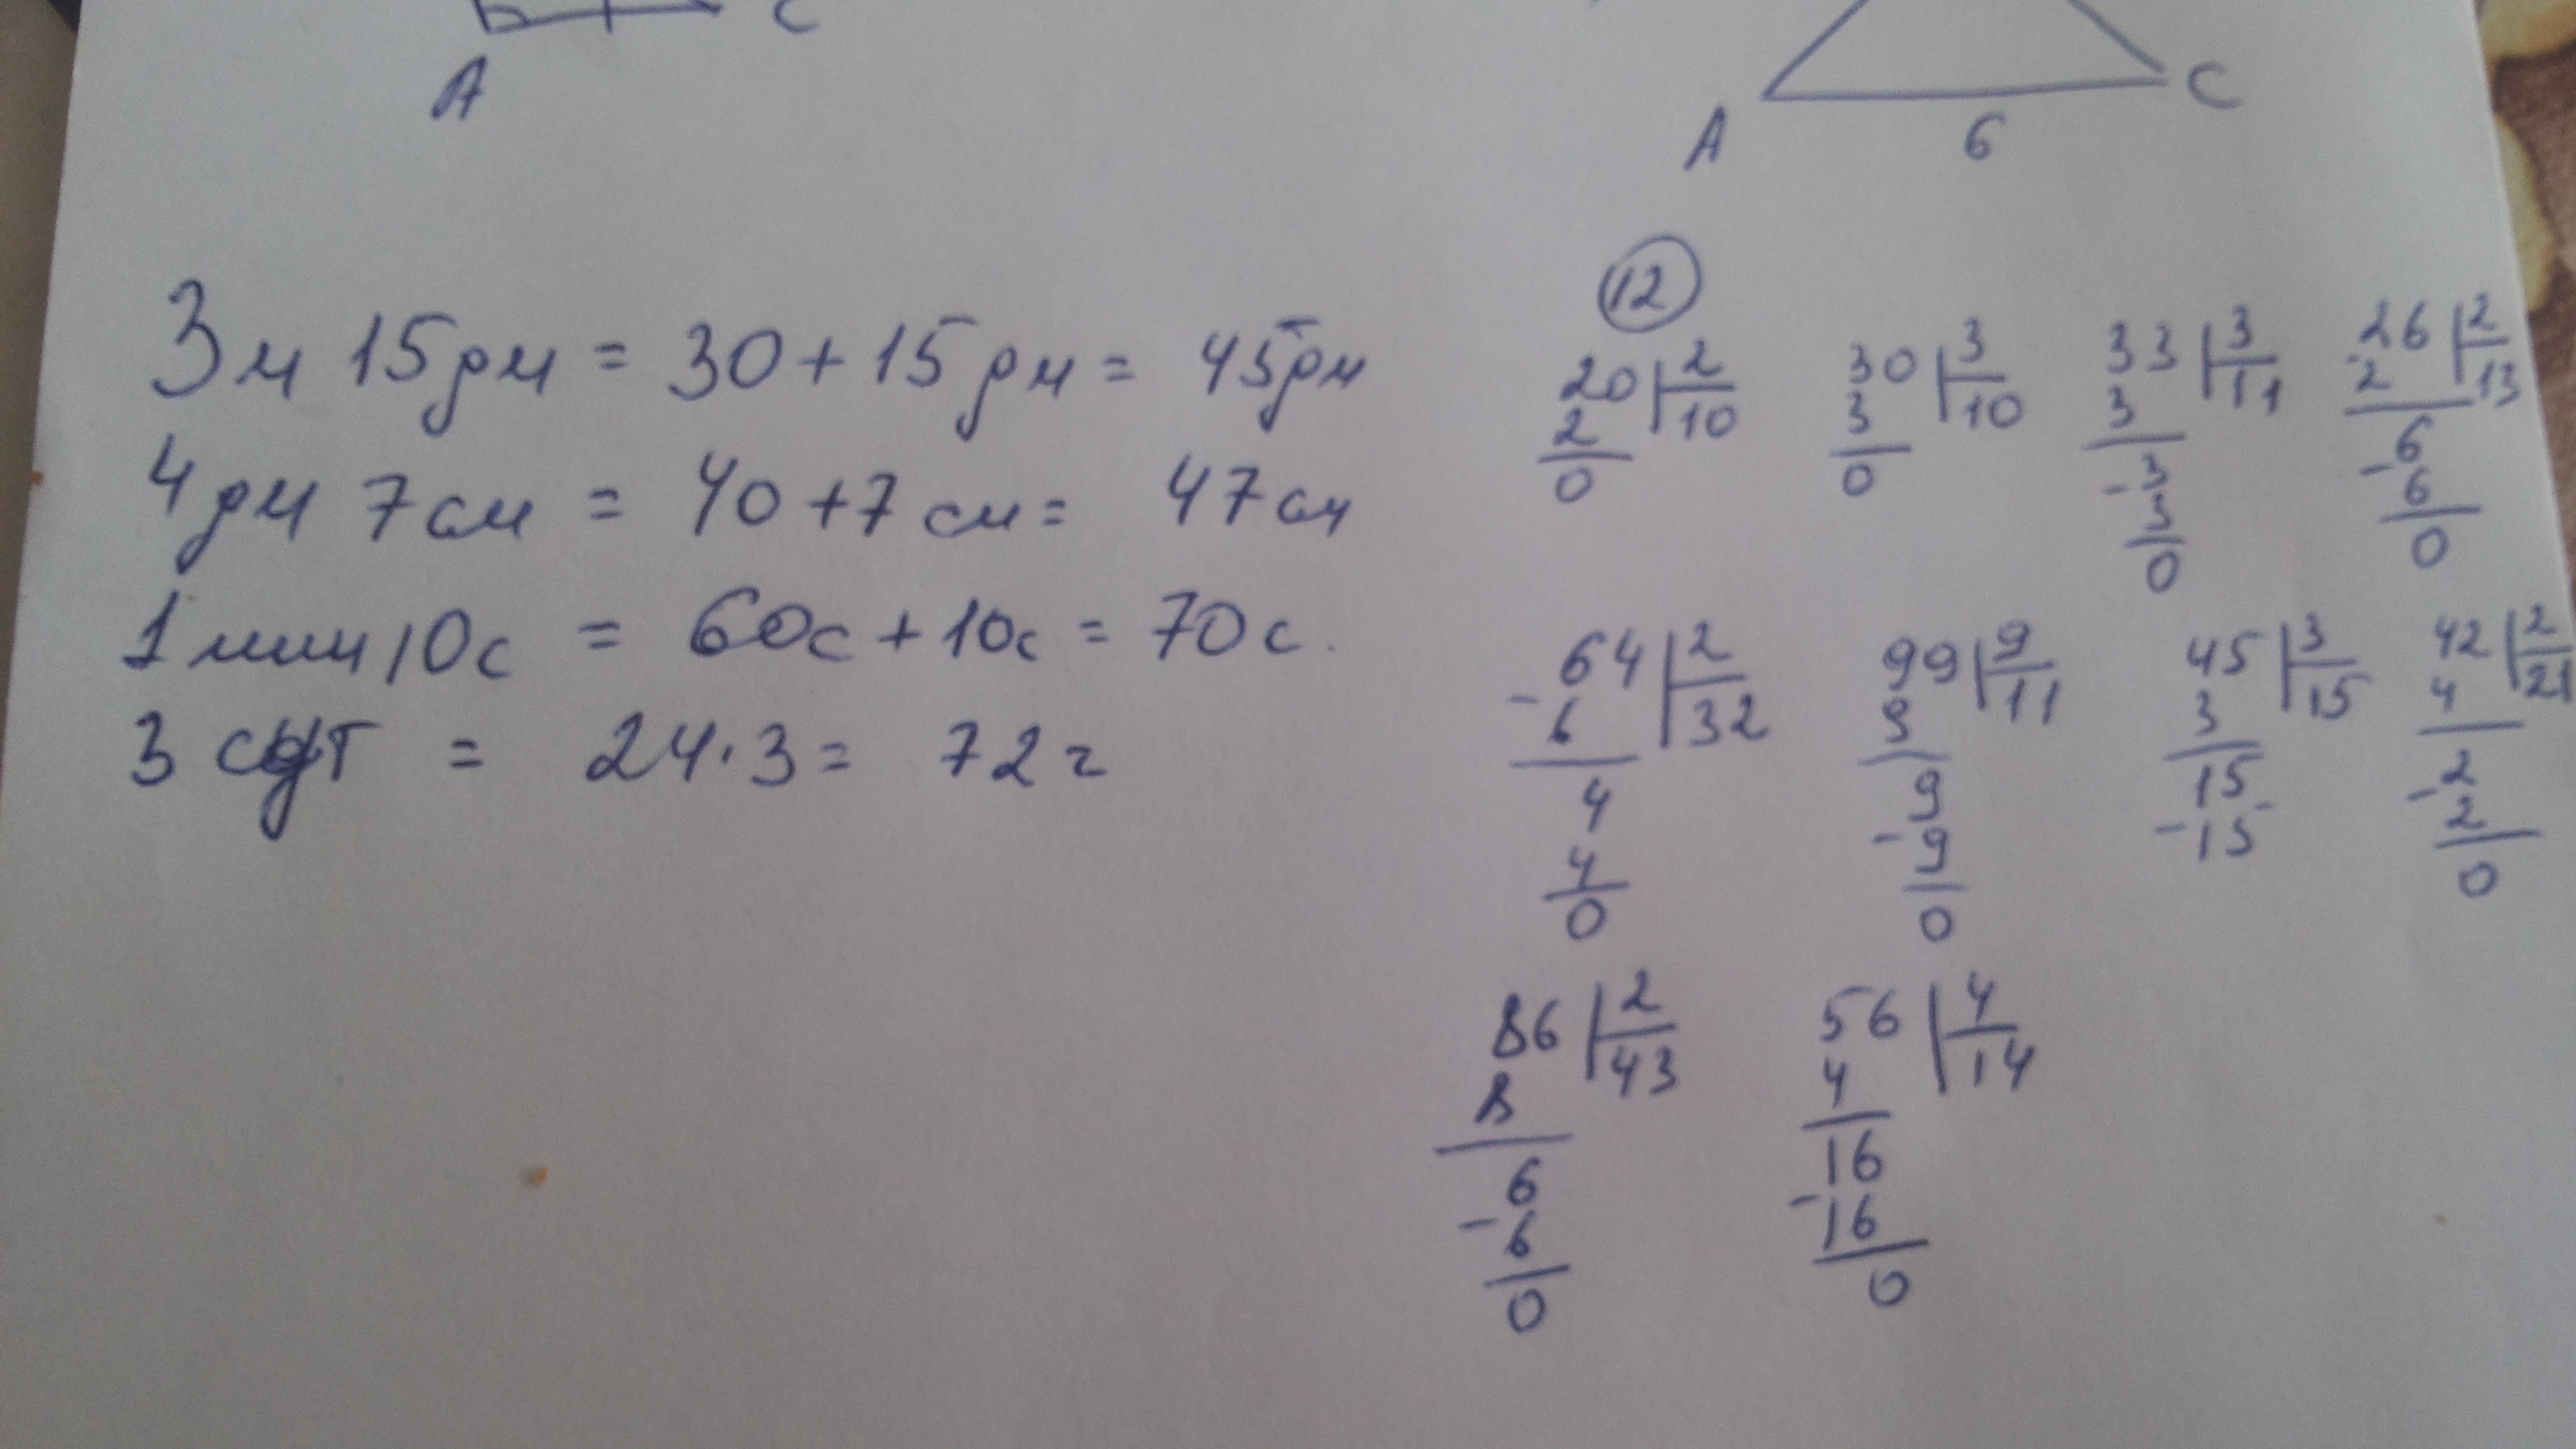 A C
A 6 C
3м 15дм = 30 + 15 дм = 45дм
4дм 7см = 40 + 7 см = 47см
1мин 10с = 60с + 10с = 70с.
3 сут = 24·3 = 72г
12
20 | 2
2 | 10
0
30 | 3
3 | 10
0
33 | 3
3 | 11
- 3
3
0
26 | 2
2 | 13
6
- 6
0
- 64 | 2
6 | 32
4
4
0
99 | 9
9 | 11
9
- 9
0
45 | 3
3 | 15
15
- 15
42 | 2
4 | 21
2
- 2
0
86 | 2
8 | 43
6
- 6
0
56 | 4
4 | 14
16
- 16
0